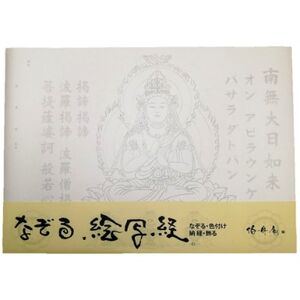 南無大日如来
オン アビラウンケ
バサラ ダトバン
羯諦羯諦
波羅羯諦 波羅僧羯
菩提薩婆訶 般若心
なぞる 絵写経
なぞる・色付け
納経・飾る